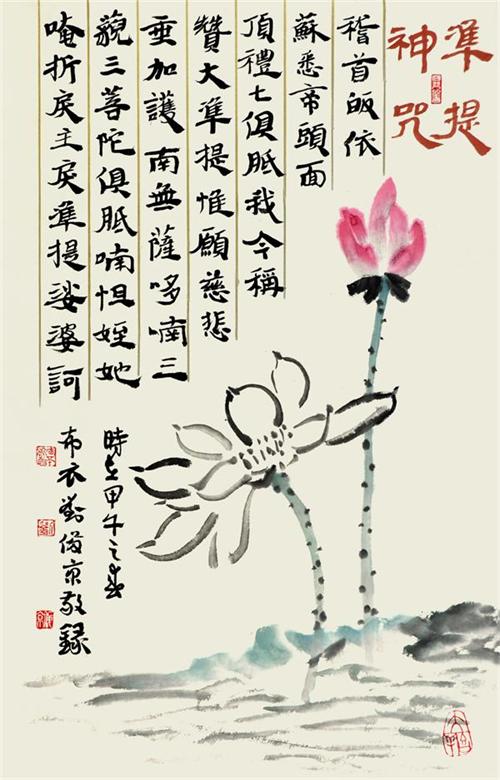 準提
神咒
稽首皈依
蘇悉帝頭面
頂禮七俱胝我今稱
讚大準提惟願慈悲
垂加護南無薩哆喃三
藐三菩陀俱胝喃怛姪她
唵折戾主戾準提娑婆訶
時在甲午之春
布衣劉俊京敬錄